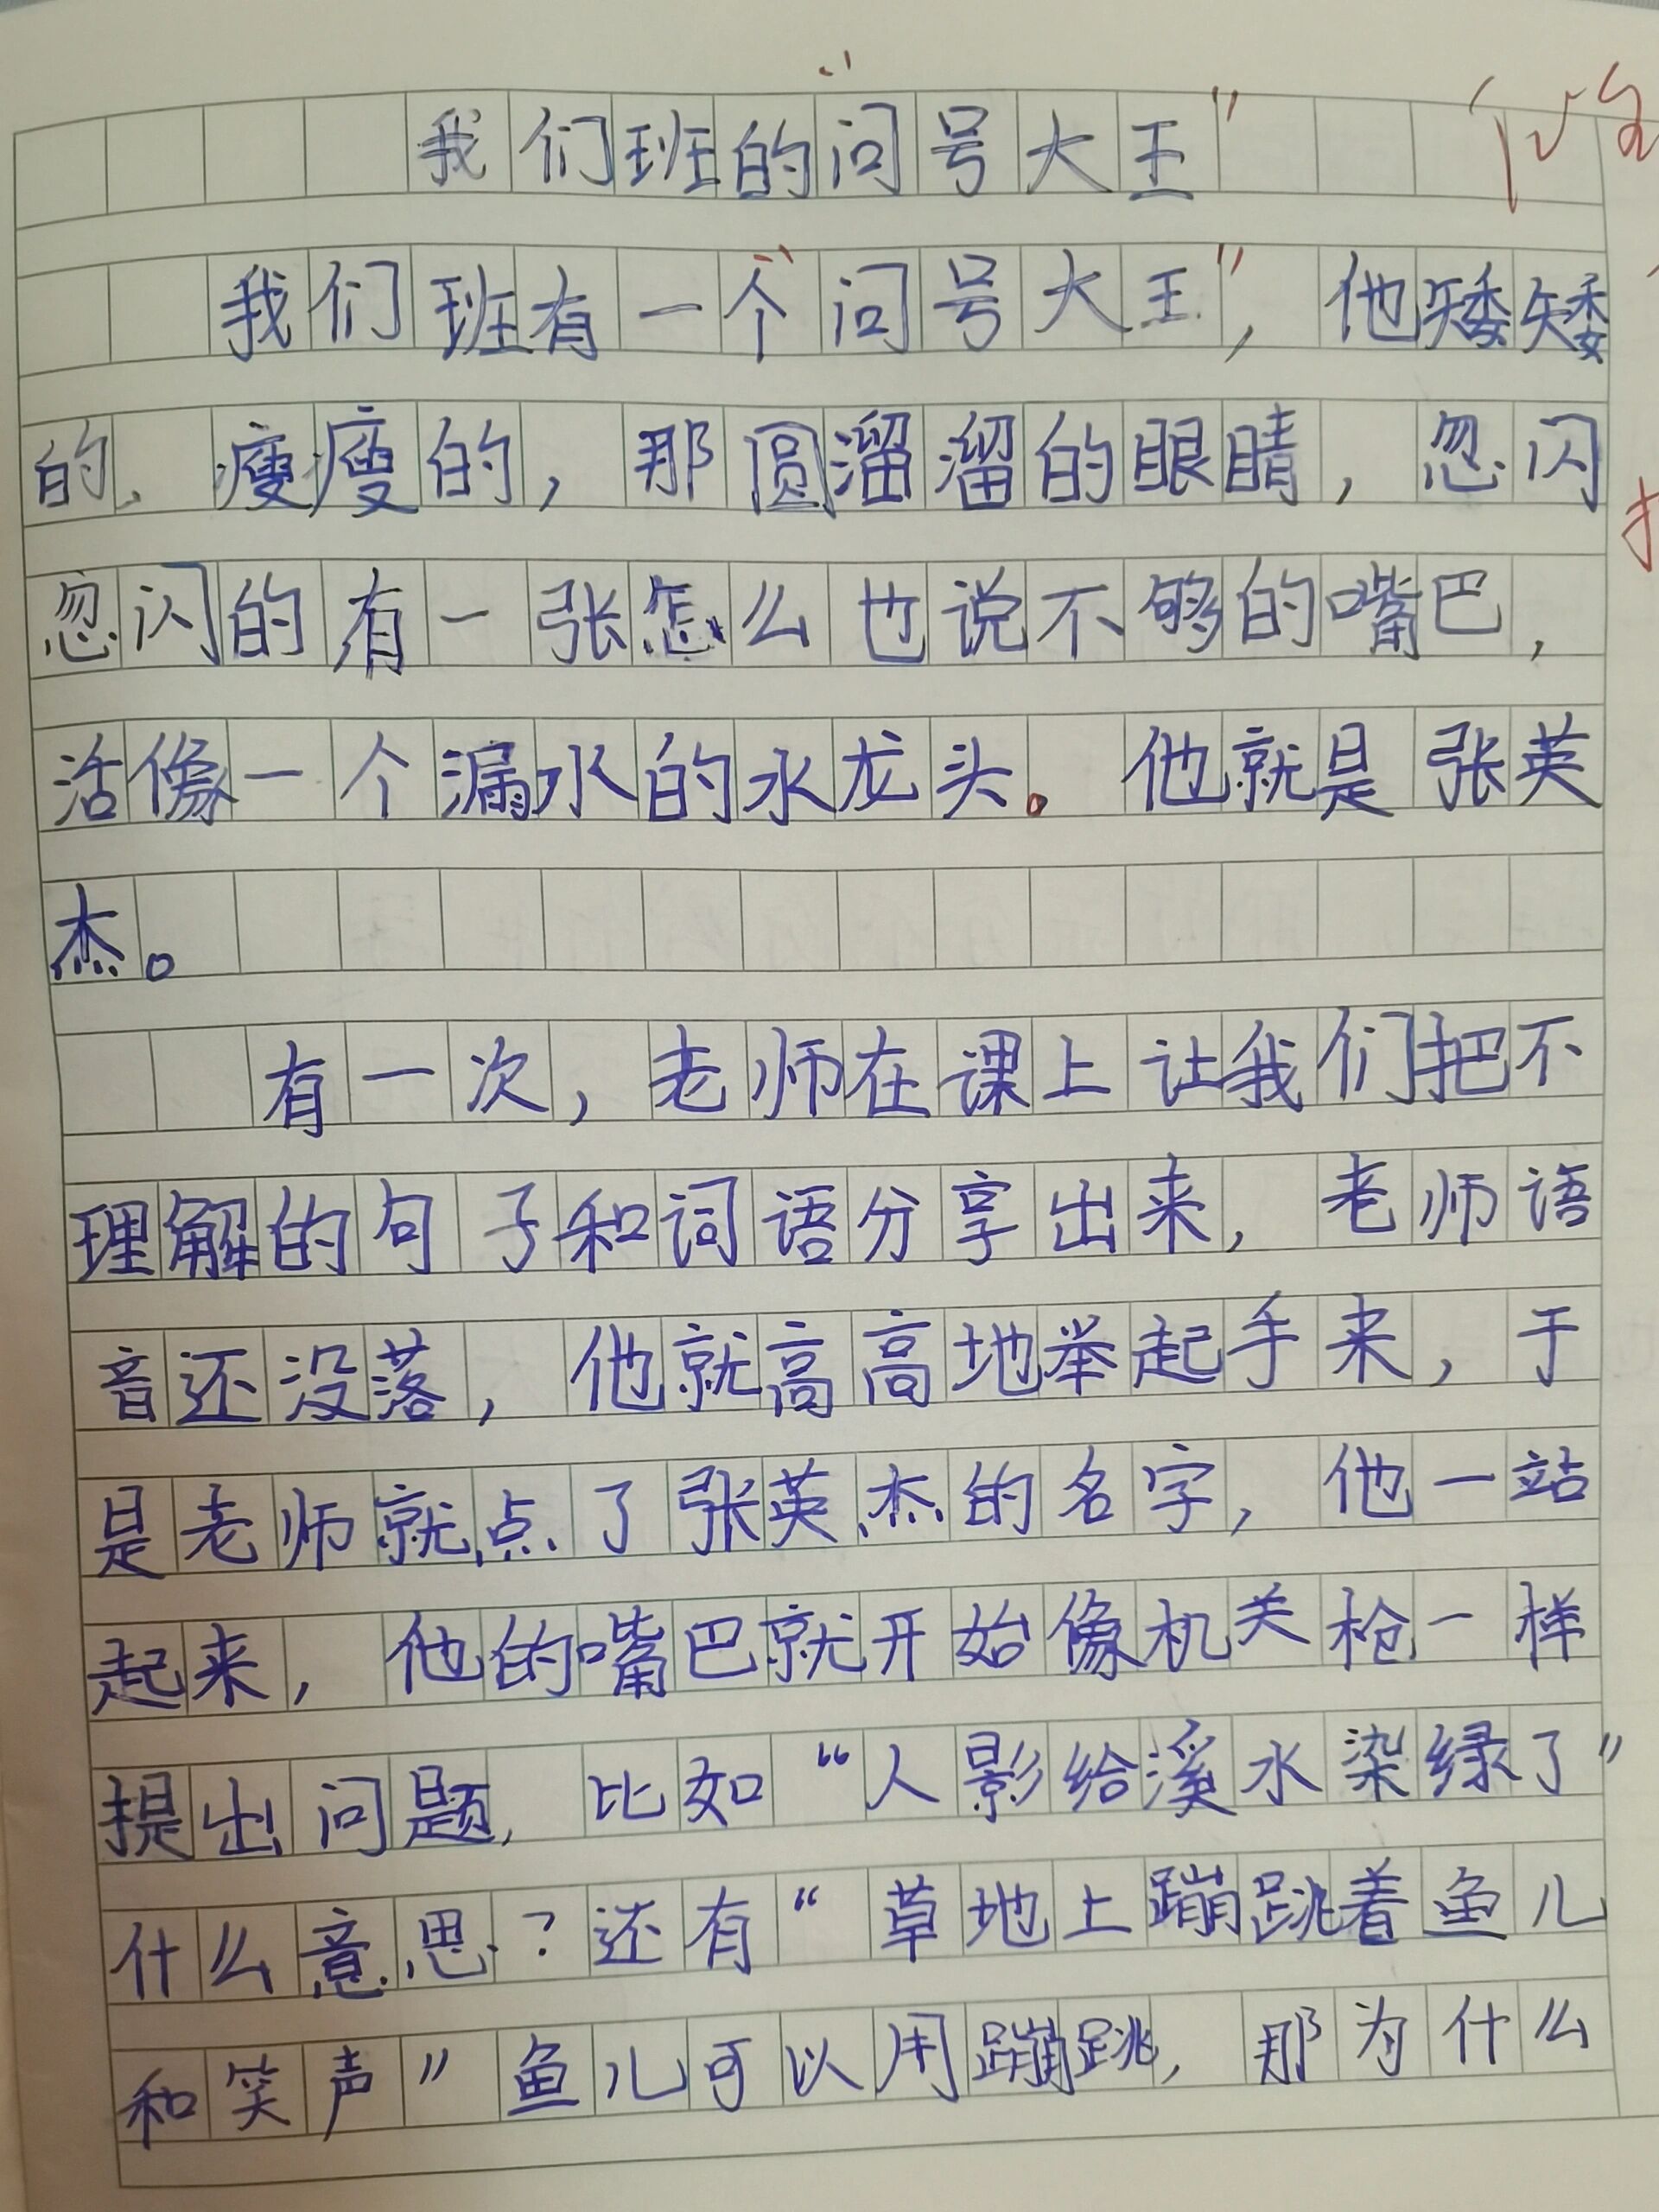 我们班的“问号大王”
我们班有一个“问号大王”，他矮矮
的、瘦瘦的，那圆溜溜的眼睛，忽闪
忽闪的有一张怎么也说不够的嘴巴，
活像一个漏水的水龙头。他就是张英
杰。
有一次，老师在课上让我们把不
理解的句子和词语分享出来，老师语
音还没落，他就高高地举起手来，于
是老师就点了张英杰的名字，他一站
起来，他的嘴巴就开始像机关枪一样
提出问题，比如“人影给溪水染绿了”
什么意思？还有“草地上蹦跳着鱼儿
和笑声”鱼儿可以用蹦跳，那为什么